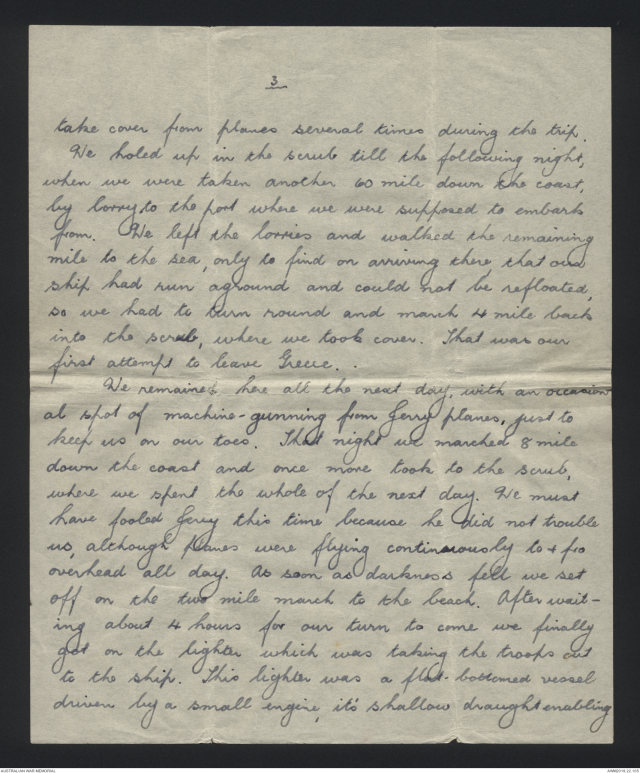 3
take cover from planes several times during the trip.
We holed up in the scrub till the following night,
when we were taken another 60 mile down the coast,
by lorry to the port where we were supposed to embark
from. We left the lorries and walked the remaining
mile to the sea, only to find on arriving there that our
ship had run aground and could not be refloated,
so we had to turn round and march 4 mile back
into the scrub, where we took cover. That was our
first attempt to leave Greece. .
We remained here all the next day, with an occasion
al spot of machine-gunning from Jerry planes, just to
keep us on our toes. That night we marched 8 mile
down the coast and once more took to the scrub,
where we spent the whole of the next day. We must
have fooled Jerry this time because he did not trouble
us, although planes were flying continuously to & fro
overhead all day. As soon as darkness fell we set
off on the two mile march to the beach. After wait-
ing about 4 hours for our turn to come we finally
got on the lighter which was taking the troops out
to the ship. This lighter was a flat-bottomed vessel
driven by a small engine, it's shallow draught enabling
AUSTRALIAN WAR MEMORIAL